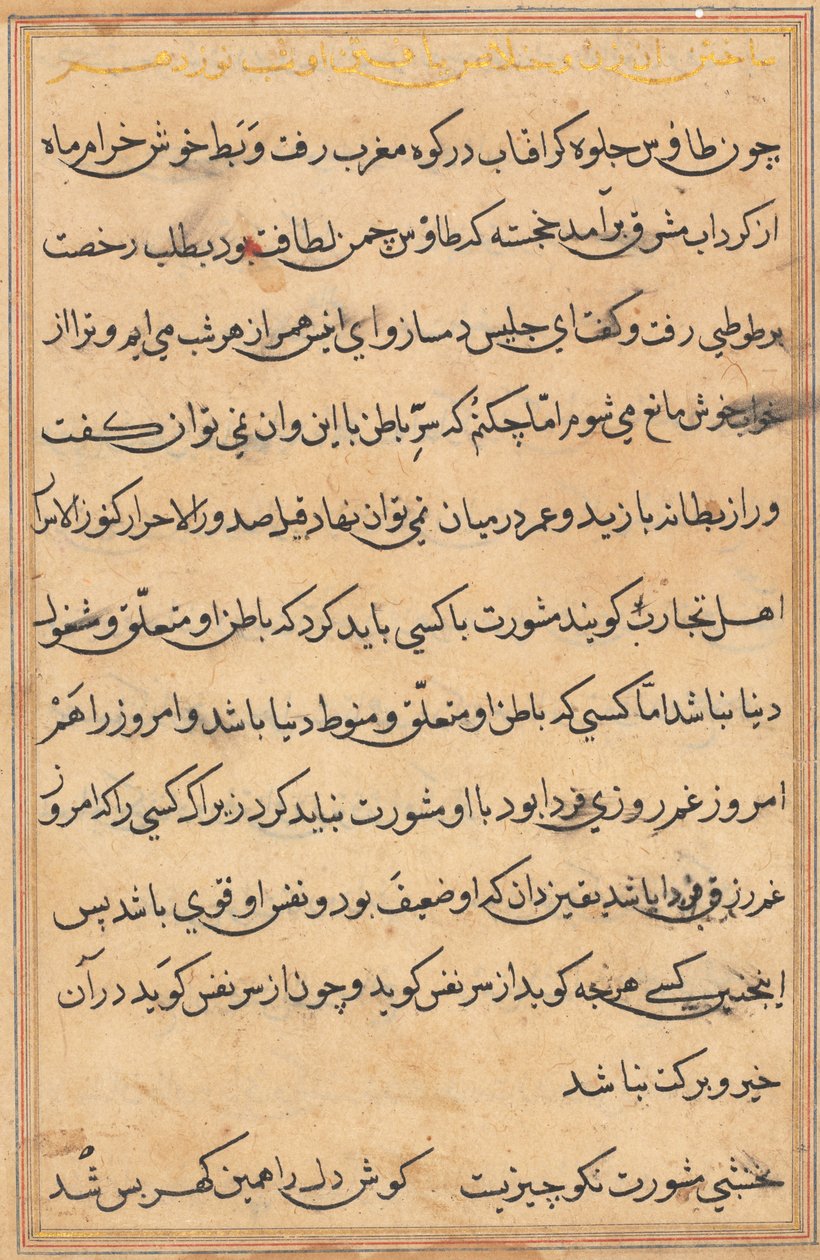 ساختن ان زن و خلاص یافتن او شب نوزدهم
چون طاؤس جلوه کر افتاب در کوه مغرب رفت وَبَط خوش خرام ماه
از کرداب مشرق برآمد خجسته که طاؤس چمن لطافت بود بطلب رخصت
بر طوطي رفت و کفت اي جلیس دمساز و اي انیس همراز هر شب مي ایم و ترا از
خواب خوش مانع مي شوم امّا چکنمُ که سرِّ باطن با این و ان نمي توان کفت
و راز بطانه با زید و عمر در میان نمي توان نهاد قیل صدور الاحرار کنوز الاسرار
اهل تجارب کویند مشورت با کسي باید کرد که باطن او متعلّق و مشغول
دنیا نباشد امّا کسي که باطن او متعلّق و منوط دنیا باشد و امروز را هَمْ
امروز غم روزي فردا بود با او مشورت نباید کرد زیرا که کسي را که امروز
غم رزق فردا باشد یقین دان که او ضعیفَ بود و نفس او قوّي باشد پس
اینچنین کسے هرچه کوید از سر نفس کوید و چون از سر نفس کوَید در آن
خیر و برکت نباشد
نخشبي مشورت نکو چیزیست کوش دل را همین کهر بس شُد